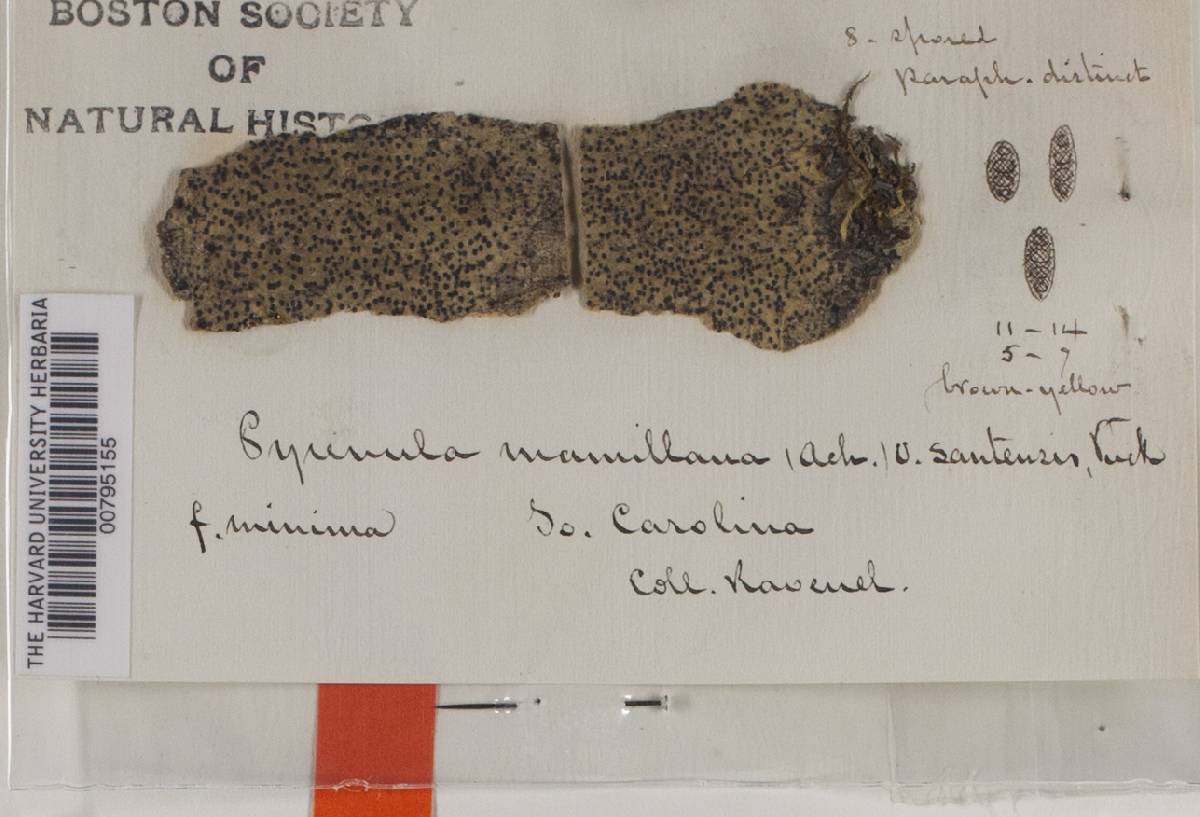 BOSTON SOCIETY
OF
NATURAL HISTO
8-spored
paraph. distinct
11-14
5-7
brown-yellow
THE HARVARD UNIVERSITY HERBARIA
00795155
Pyrenula mamillana (Ach.) v. santensis, Tuck
f. minima So. Carolina
Coll. Ravenel.